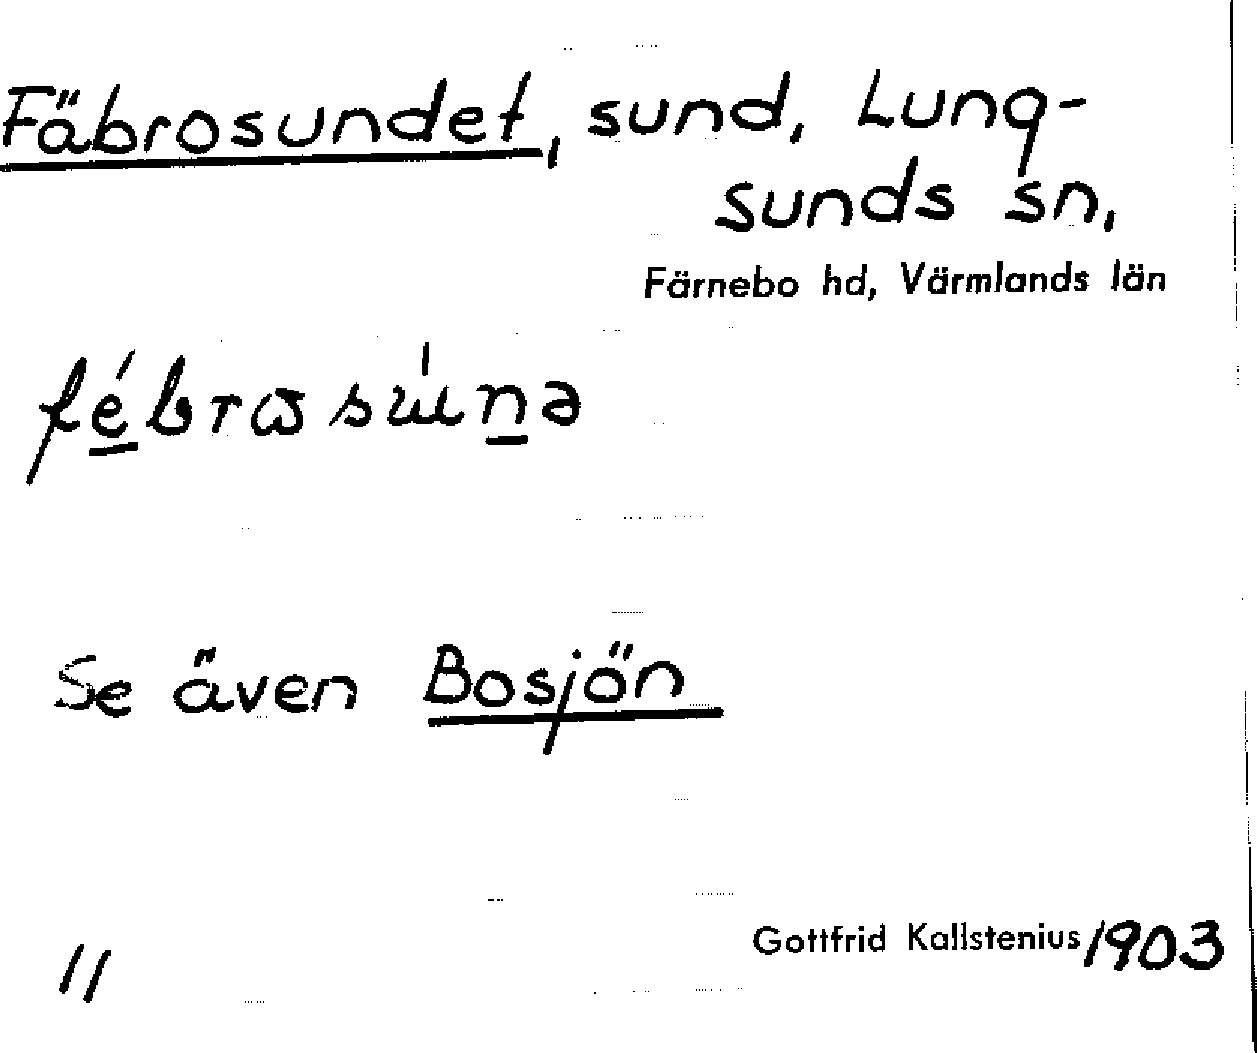 Fäbrosundet, sund, Lung-
sunds sn,
Färnebo hd, Värmlands län
Se även Bosjön
Gottfrid Kallstenius 1903
11